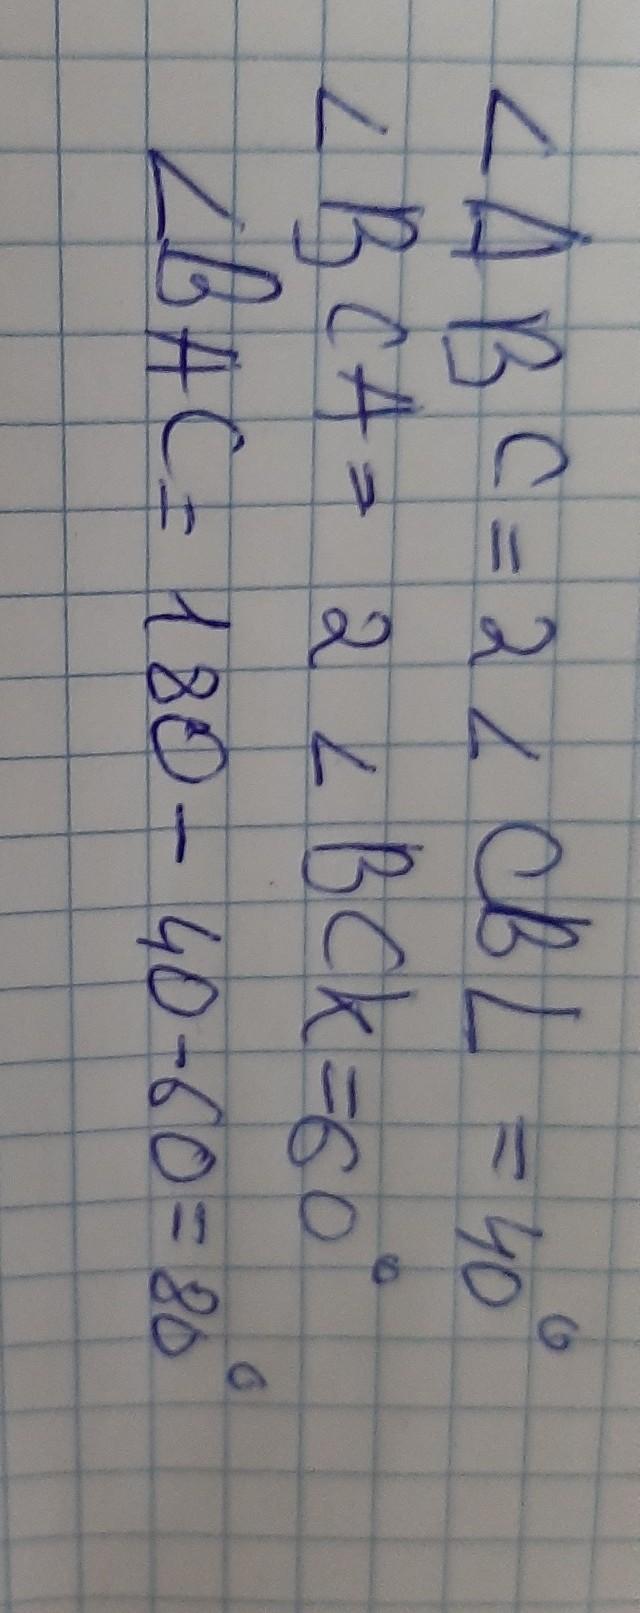 ∠ABC = 2∠CBL = 40°
∠BCA = 2∠BCK = 60°
∠BAC = 180 - 40 - 60 = 80°